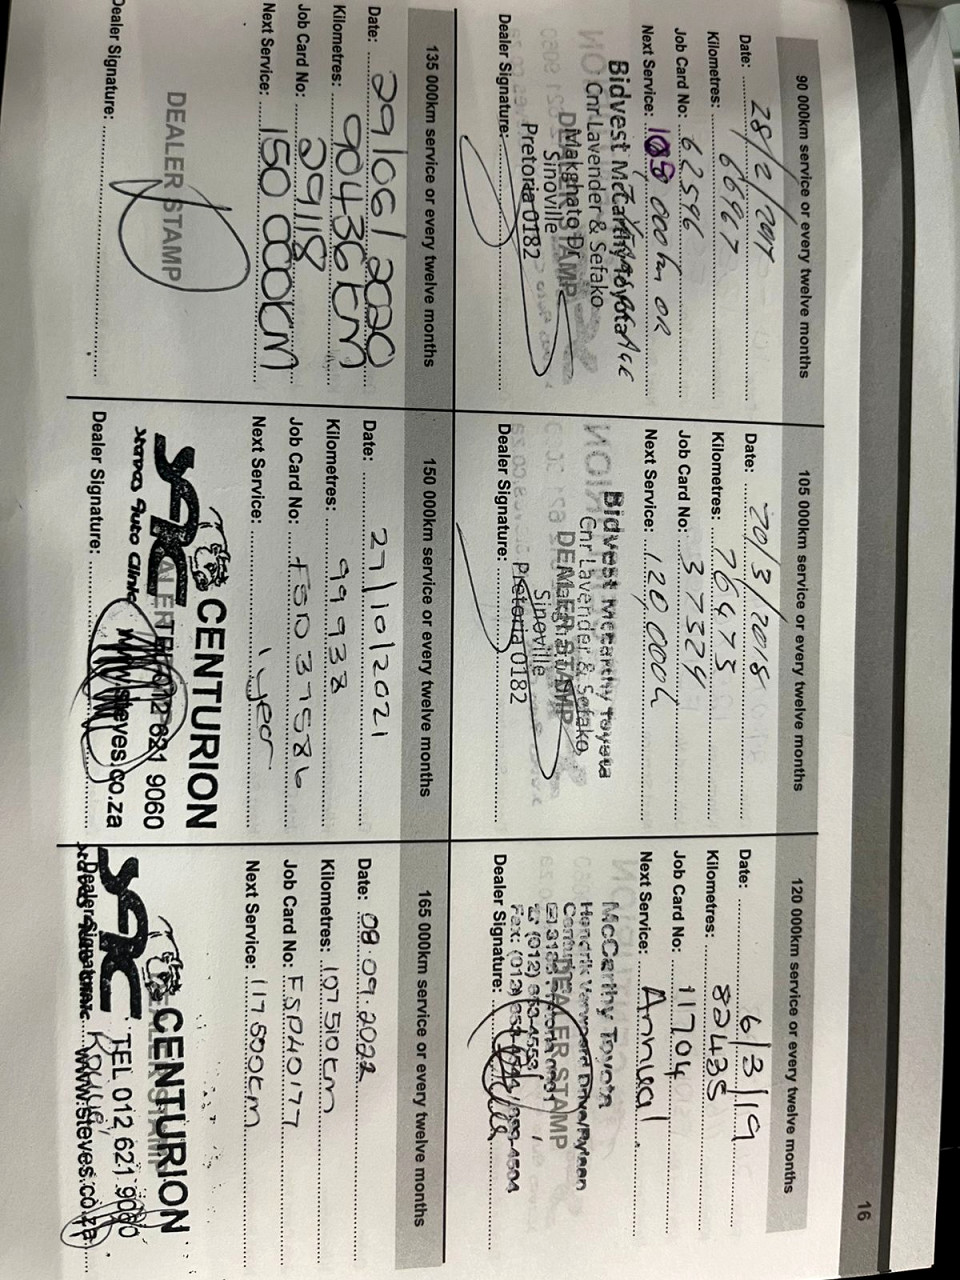 16
90 000km service or every twelve months
Date: 28/2/2017
Kilometres: 66967
Job Card No: 62596
Next Service: 105 000 km OR
Bidvest McCarthy Toyota
Cnr Lavender & Sefako
Makghato Dr
DEALER STAMP
Sinoville
Pretoria 0182
Dealer Signature:
105 000km service or every twelve months
Date: 20/3/2018
Kilometres: 76473
Job Card No: 37324
Next Service: 120,000k
Bidvest McCarthy Toyota
Cnr Lavender & Sefako
DEALER STAMP
Sinoville
Pretoria 0182
Dealer Signature:
120 000km service or every twelve months
Date: 6/3/19
Kilometres: 82435
Job Card No: 11704
Next Service: Annual
McCarthy Toyota
DEALER STAMP
Dealer Signature:
135 000km service or every twelve months
Date: 29/06/2020
Kilometres: 90436km
Job Card No: 29118
Next Service: 150 000km
DEALER STAMP
Dealer Signature:
150 000km service or every twelve months
Date: 27/10/2021
Kilometres: 99933
Job Card No: FS1037586
Next Service: 1 year
CENTURION
SAC
TEL 012 621 9060
Steves Auto Clinic
www.steves.co.za
Dealer Signature:
165 000km service or every twelve months
Date: 08.09.2022
Kilometres: 107510km
Job Card No: FSP40177
Next Service: 117500km
CENTURION
SAC
TEL 012 621 9060
www.steves.co.za
Dealer Signature: